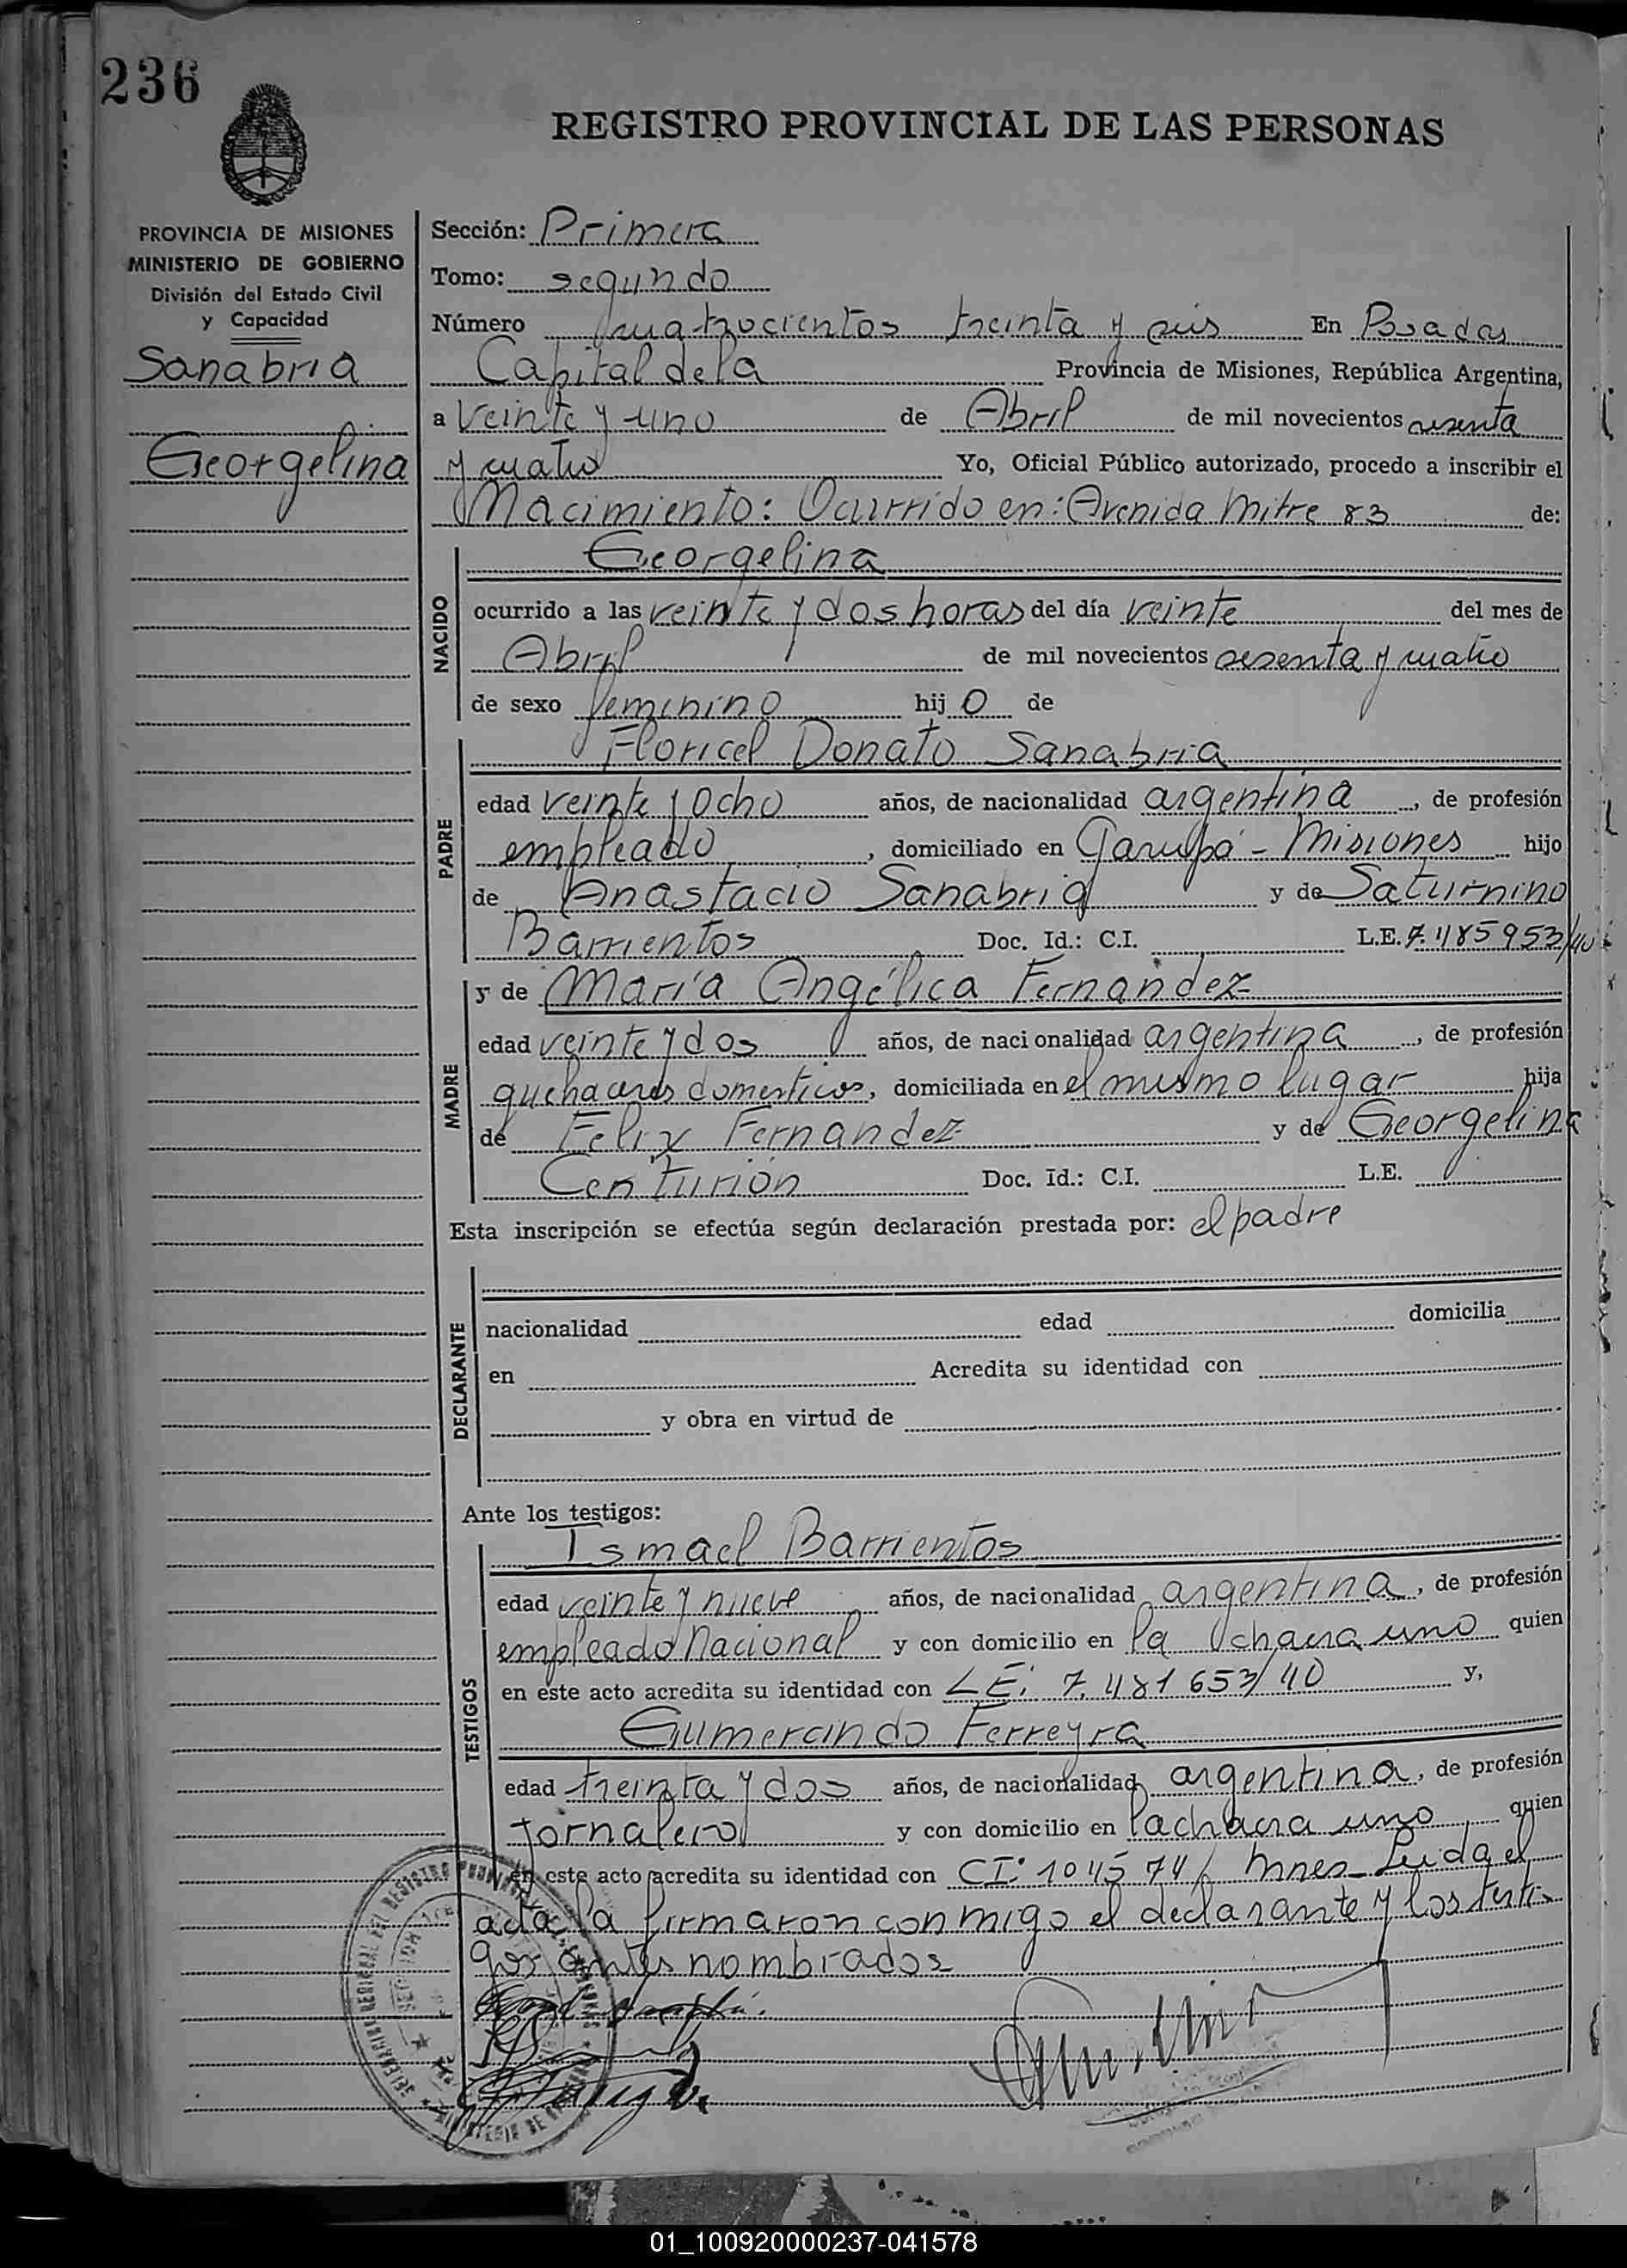 236
REGISTRO PROVINCIAL DE LAS PERSONAS
PROVINCIA DE MISIONES
MINISTERIO DE GOBIERNO
División del Estado Civil
y Capacidad
Sanabria
Georgelina
Sección: Primera
Tomo: segundo
Número cuatrocientos treinta y seis En Posadas
Capital de la Provincia de Misiones, República Argentina,
a veinte y uno de Abril de mil novecientos sesenta
y cuatro Yo, Oficial Público autorizado, procedo a inscribir el
Nacimiento: Ocurrido en: Avenida Mitre 83 de:
NACIDO
Georgelina
ocurrido a las veinte y dos horas del día veinte del mes de
Abril de mil novecientos sesenta y cuatro
de sexo femenino hijo de
PADRE
Floricel Donato Sanabria
edad veinte y ocho años, de nacionalidad argentina, de profesión
empleado, domiciliado en Garupá - Misiones hijo
de Anastacio Sanabria y de Saturnino
Barrientos Doc. Id.: C.I. L.E. 7.485953/40
MADRE
y de María Angélica Fernández
edad veinte y dos años, de nacionalidad argentina, de profesión
quehaceres domesticos, domiciliada en el mismo lugar hija
de Felix Fernandez y de Georgelina
Centurión Doc. Id.: C.I. L.E.
Esta inscripción se efectúa según declaración prestada por: el padre
DECLARANTE
nacionalidad edad domicilia
en Acredita su identidad con
y obra en virtud de
Ante los testigos:
TESTIGOS
Ismael Barrientos
edad veinte y nueve años, de nacionalidad argentina, de profesión
empleado Nacional y con domicilio en la chacra uno quien
en este acto acredita su identidad con LE: 7.481653/40 y,
Gumercindo Ferreyra
edad treinta y dos años, de nacionalidad argentina, de profesión
jornalero y con domicilio en la chacra uno quien
en este acto acredita su identidad con CI: 104574 Mnes. Leida el
acta, la firmaron conmigo el declarante y los testi-
gos antes nombrados
01_100920000237-041578